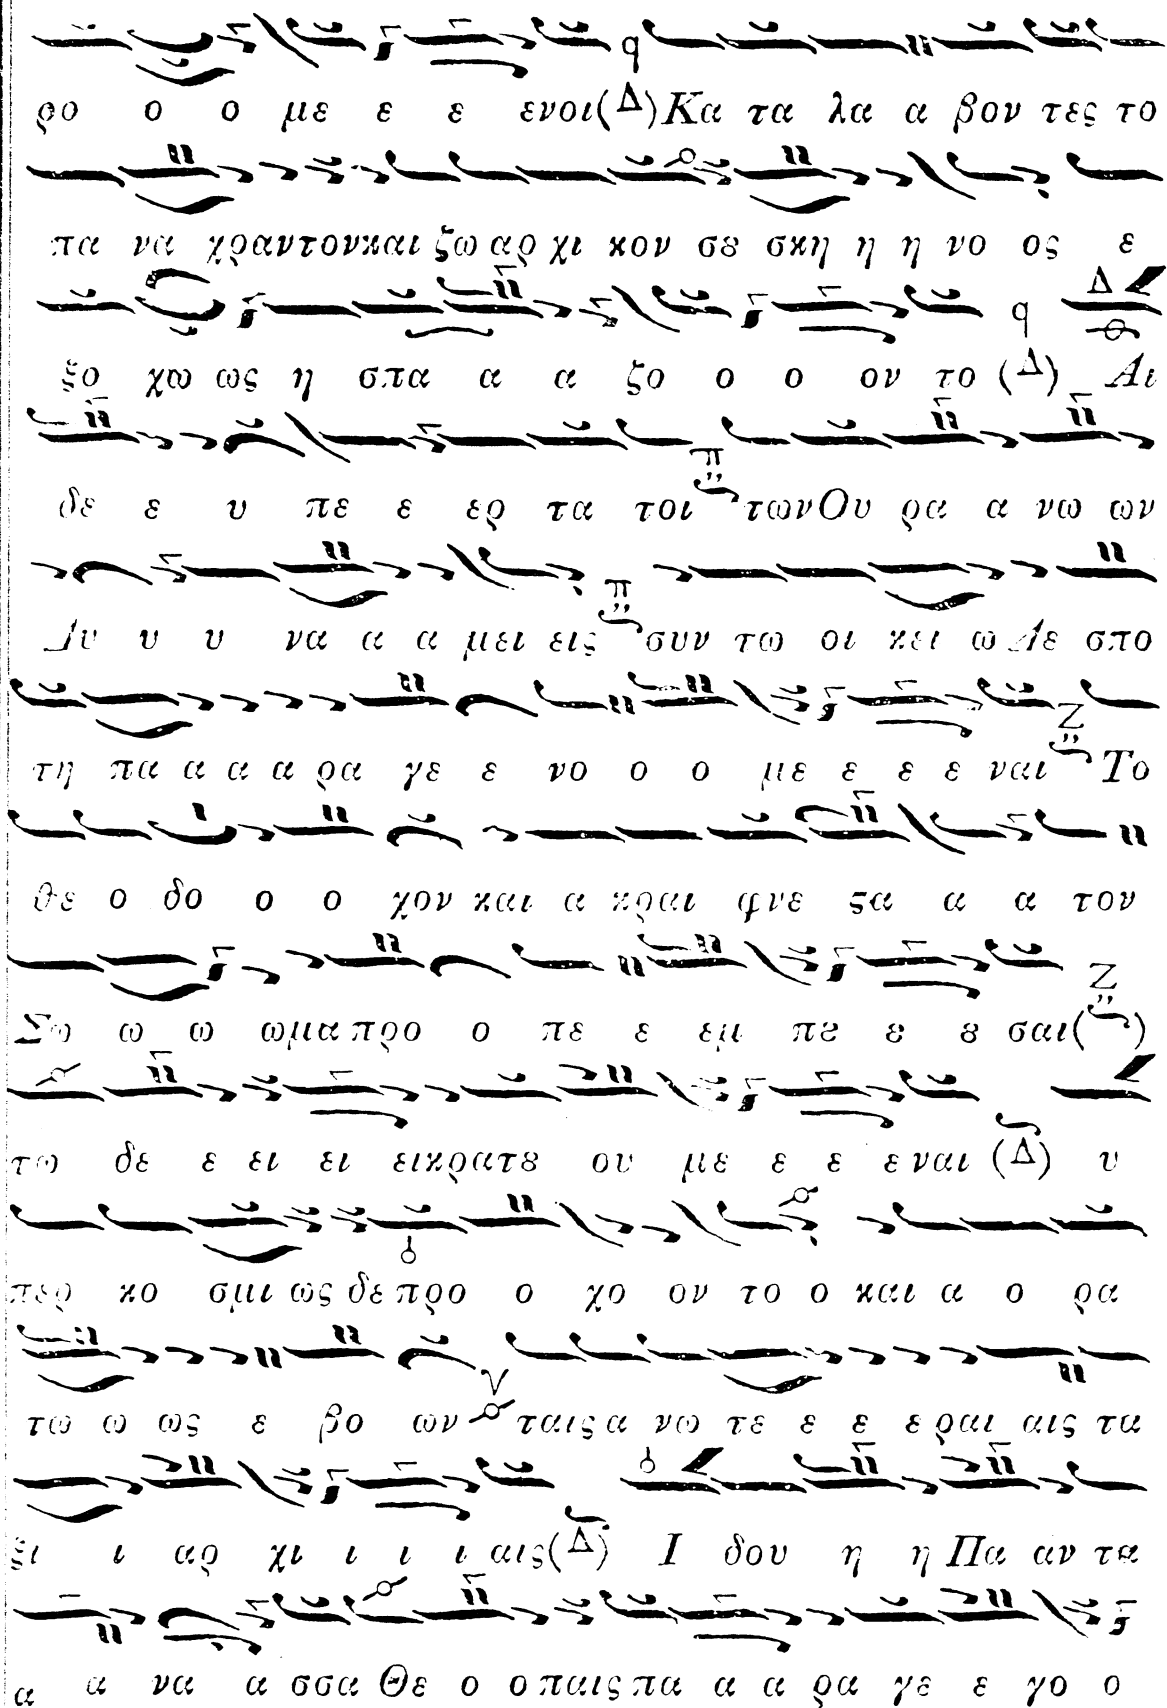 ρο ο ο με ε ε ενοι(Δ) Κα τα λα α βον τες το
πα να χραντον και ζω αρ χι κον σȣ σκη η η νο ος ε
ξο χω ως η σπα α α ζο ο ο ον το (Δ) Αι
δε ε υ πε ε ερ τα τοι των Ου ρα α νω ων
Δυ υ υ να α α μει εις συν τω οι κει ω Δε σπο
τη πα α α α ρα γε ε νο ο ο με ε ε ε ναι Το
θε ο δο ο ο χον και α κραι φνε ϛα α α τον
Σω ω ω ωμα προ ο πε ε εμ πȣ ȣ ȣ σαι( )
τω δε ε ει ει εικρατȣ ου με ε ε εναι (Δ) υ
περ κο σμι ως δε προ ο χο ον το ο και α ο ρα
τω ω ως ε βο ων ταις α νω τε ε ε εραι αις τα
ξι ι αρ χι ι ι ι αις(Δ) Ι δου η η Πα αν τα
α α να α σσα Θε ο ο παις πα α α ρα γε ε γο ο